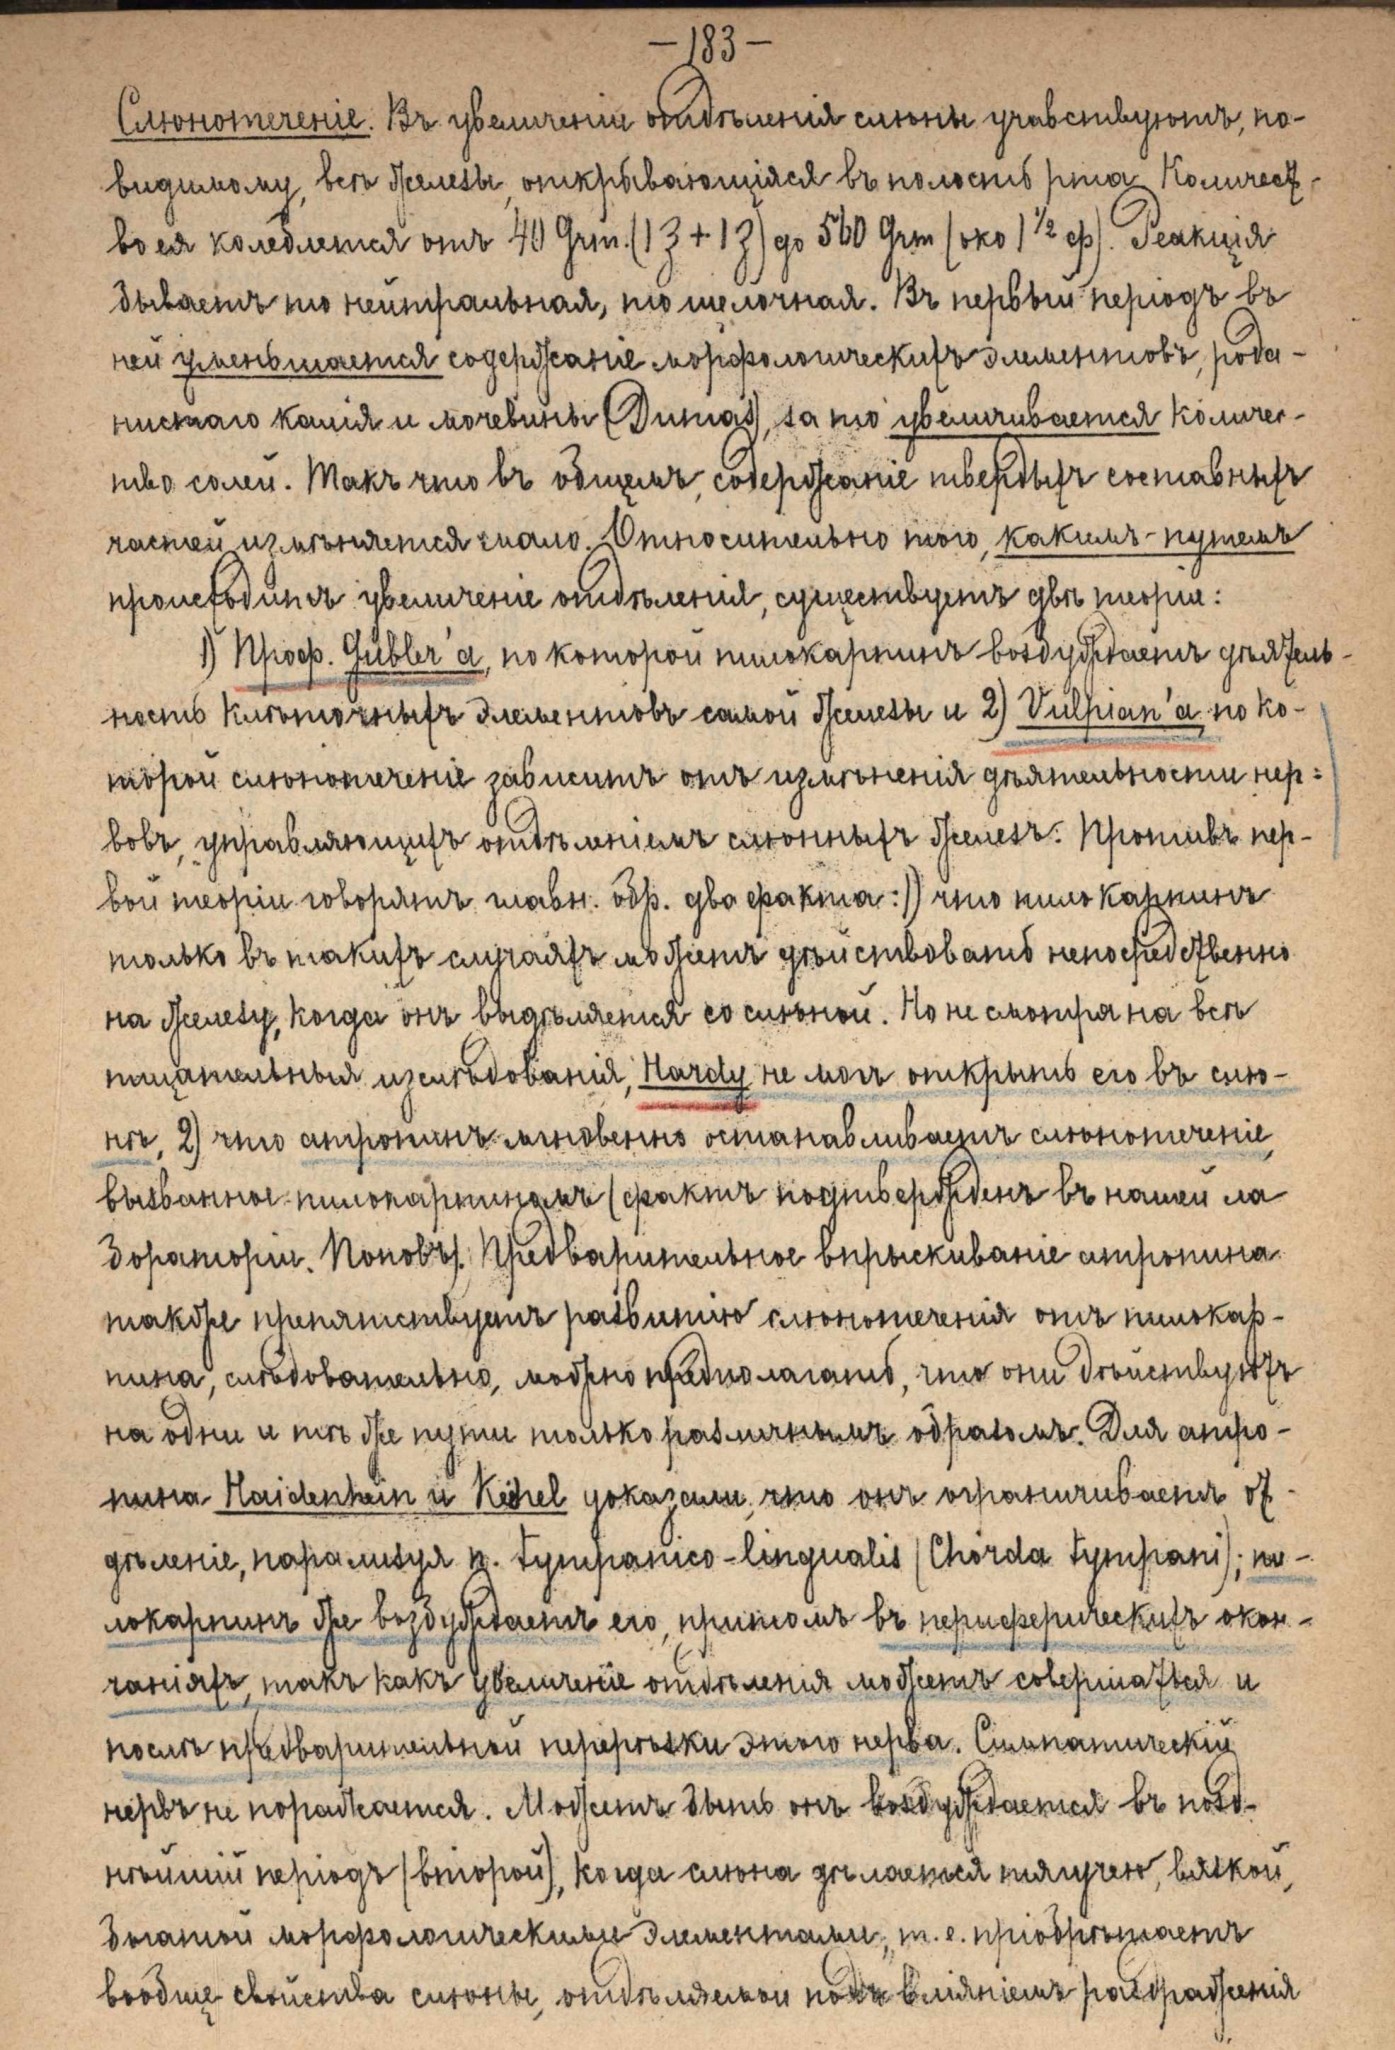 —183—
Слюнотеченіе. Въ увеличеніи отдѣленія слюны учавствуютъ, по-
видимому, всѣ железы, открывающіяся въ полость рта Количест-
во ея колеблется отъ 40 Grm. (1ʒ + 1ʒ) до 560 Grm (око 1 1/2 ф). Реакція
бываетъ то нейтральная, то щелочная. Въ первый періодъ въ
ней уменьшается содержаніе морфологическихъ элементовъ, рода-
нистаго калія и мочевины (Dumas), за то увеличивается количес-
тво солей. Такъ что въ общемъ, содержаніе твердыхъ составныхъ
частей измѣняется мало. Относительно того, какимъ-путемъ
происходитъ увеличеніе отдѣленія, существуетъ двѣ теоріи:
1) Проф. Gubler'a, по которой пилокарпинъ возбуждаетъ дѣятель-
ность клѣточныхъ элементовъ самой железы и 2) Vulpian'a, по ко-
торой слюнотеченіе зависитъ отъ измѣненія дѣятельности нер=
вовъ, управляющихъ отдѣленіемъ слюнныхъ железъ. Противъ пер-
вой теоріи говорятъ главн. обр. два факта: 1) что пилокарпинъ
только въ такихъ случаяхъ можетъ дѣйствовать непосредственно
на железу, когда онъ выдѣляется со слюной. Но не смотря на всѣ
тщательныя изслѣдованія, Hardy не могъ открыть его въ слю-
нѣ, 2) что атропинъ мгновенно останавливаетъ слюнотеченіе,
вызванное пилокарпиномъ (фактъ подтвержденъ въ нашей ла
бораторіи. Поповъ). Предварительное впрыскиваніе атропина
также препятствуетъ развитію слюнотеченія отъ пилокар-
пина, слѣдовательно, можно предполагать, что они дѣйствуютъ
на одни и тѣ же пути только различнымъ образомъ. Для атро-
пина Haidenhein и Keuchel доказали, что онъ ограничиваетъ от-
дѣленіе, парализуя n. tympanico-lingualis (Chorda tympani); пи-
локарпинъ же возбуждаетъ его, притомъ въ периферическихъ окон-
чаніяхъ, такъ какъ увеличеніе отдѣленія можетъ совершаться и
послѣ предварительной перерѣзки этого нерва. Симпатическій
нервъ не поражается. Можетъ быть онъ возбуждается въ позд-
нѣйшій періодъ (второй), когда слюна дѣлается тягучею, вязкой,
богатой морфологическими элементами, т. е. пріобрѣтаетъ
вообще свойства слюны, отдѣляемой подъ вліяніемъ раздраженія